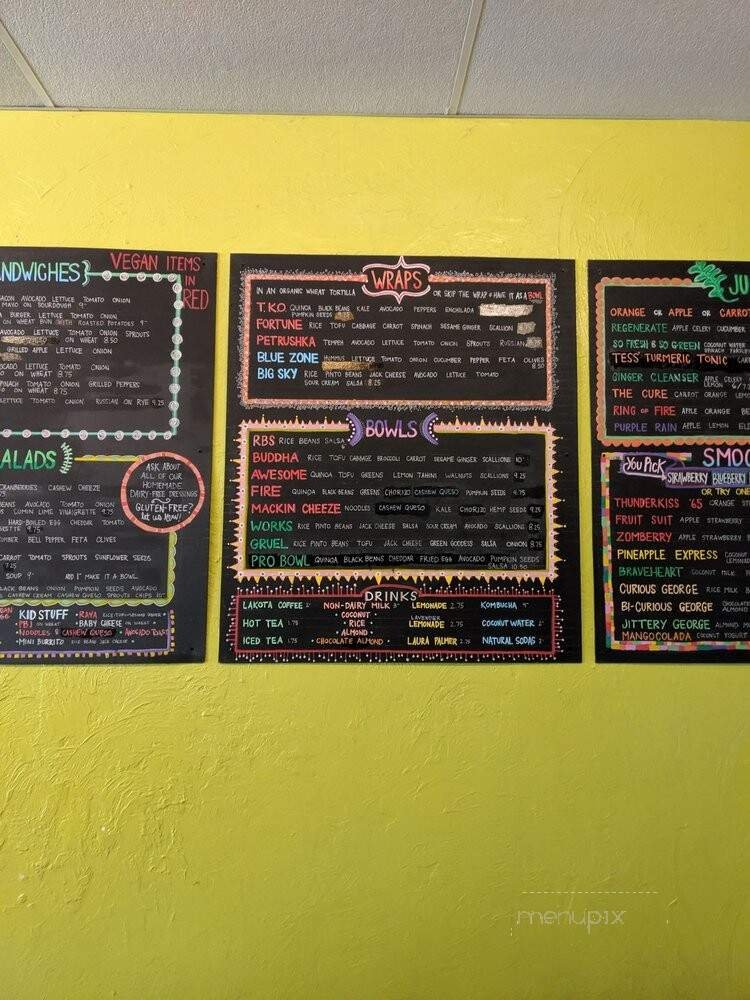 NDWICHES
VEGAN ITEMS
IN
RED
BACON AVOCADO LETTUCE TOMATO ONION
MAYO ON SOURDOUGH 9
BURGER LETTUCE TOMATO ONION
ON WHEAT BUN WITH ROASTED POTATOES 9
AVOCADO LETTUCE TOMATO ONION SPROUTS
ON WHEAT 8.50
GRILLED APPLE LETTUCE ONION
LETTUCE TOMATO ONION
ON WHEAT 8.75
SPINACH TOMATO ONION GRILLED PEPPERS
ON WHEAT 8.75
LETTUCE TOMATO ONION RUSSIAN ON RYE 9.25
ALADS
CRANBERRIES CASHEW CHEEZE
BEANS AVOCADO TOMATO ONION
CUMIN LIME VINAIGRETTE 9.75
HARD-BOILED EGG CHEDDAR TOMATO
9.75
BELL PEPPER FETA OLIVES
CARROT TOMATO SPROUTS SUNFLOWER SEEDS
7.25
SOUP 9 ADD 1 MAKE IT A BOWL
BLACK BEANS ONION PUMPKIN SEEDS AVOCADO
CASHEW CREAM CASHEW QUESO SPROUTS CHIPS 10
ASK ABOUT
ALL OF OUR
HOMEMADE
DAIRY-FREE DRESSINGS
GLUTEN-FREE?
let us know!
KID STUFF • RAYA
• PBJ ON WHEAT • BABY CHEESE ON WHEAT
• NOODLES & CASHEW QUESO • AVOCADO TOAST
• MINI BURRITO RICE BEANS JACK CHEESE
WRAPS
IN AN ORGANIC WHEAT TORTILLA OR SKIP THE WRAP & HAVE IT AS A BOWL
T.KO QUINOA BLACK BEANS KALE AVOCADO PEPPERS ENCHILADA
PUMPKIN SEEDS
FORTUNE RICE TOFU CABBAGE CARROT SPINACH SESAME GINGER SCALLION
PETRUSHKA TEMPEH AVOCADO LETTUCE TOMATO ONION SPROUTS RUSSIAN
BLUE ZONE HUMMUS LETTUCE TOMATO ONION CUCUMBER PEPPER FETA OLIVES
8.50
BIG SKY RICE PINTO BEANS JACK CHEESE AVOCADO LETTUCE TOMATO
SOUR CREAM SALSA 8.25
BOWLS
RBS RICE BEANS SALSA
BUDDHA RICE TOFU CABBAGE BROCCOLI CARROT SESAME GINGER SCALLIONS 10
AWESOME QUINOA TOFU GREENS LEMON TAHINI WALNUTS SCALLIONS 9.75
FIRE QUINOA BLACK BEANS GREENS CHORIZO CASHEW QUESO PUMPKIN SEEDS 9.75
MACKIN CHEEZE NOODLES CASHEW QUESO KALE CHORIZO HEMP SEEDS 9.25
WORKS RICE PINTO BEANS JACK CHEESE SALSA SOUR CREAM AVOCADO SCALLIONS 8.25
GRUEL RICE PINTO BEANS TOFU JACK CHEESE GREEN GODDESS SALSA ONION 8.75
PRO BOWL QUINOA BLACK BEANS CHEDDAR FRIED EGG AVOCADO PUMPKIN SEEDS
SALSA 10.50
DRINKS
LAKOTA COFFEE 2 NON-DAIRY MILK 3 LEMONADE 2.75 KOMBUCHA
HOT TEA 1.75 • COCONUT • RICE LAVENDER LEMONADE 2.75 COCONUT WATER
ICED TEA 1.75 • ALMOND • CHOCOLATE ALMOND LAURA PALMER 2.75 NATURAL SODAS
JU
ORANGE OR APPLE OR CARROT
REGENERATE APPLE CELERY CUCUMBER
SO FRESH & SO GREEN COCONUT WATER
SPINACH PARSLEY
TESS' TURMERIC TONIC CAR
GINGER CLEANSER APPLE CELERY
LEMON
THE CURE CARROT ORANGE LEMON
RING OF FIRE APPLE ORANGE
PURPLE RAIN APPLE LEMON
You Pick
SMOO
STRAWBERRY BLUEBERRY
OR TRY ONE
THUNDERKISS '65 ORANGE
FRUIT SUIT APPLE STRAWBERRY
ZOMBERRY APPLE STRAWBERRY
PINEAPPLE EXPRESS COCONUT
LEMONADE
BRAVEHEART COCONUT MILK
CURIOUS GEORGE RICE MILK
BI-CURIOUS GEORGE CHOCOLATE
ALMOND
JITTERY GEORGE ALMOND
MANGO COLADA COCONUT YOGURT
menupix